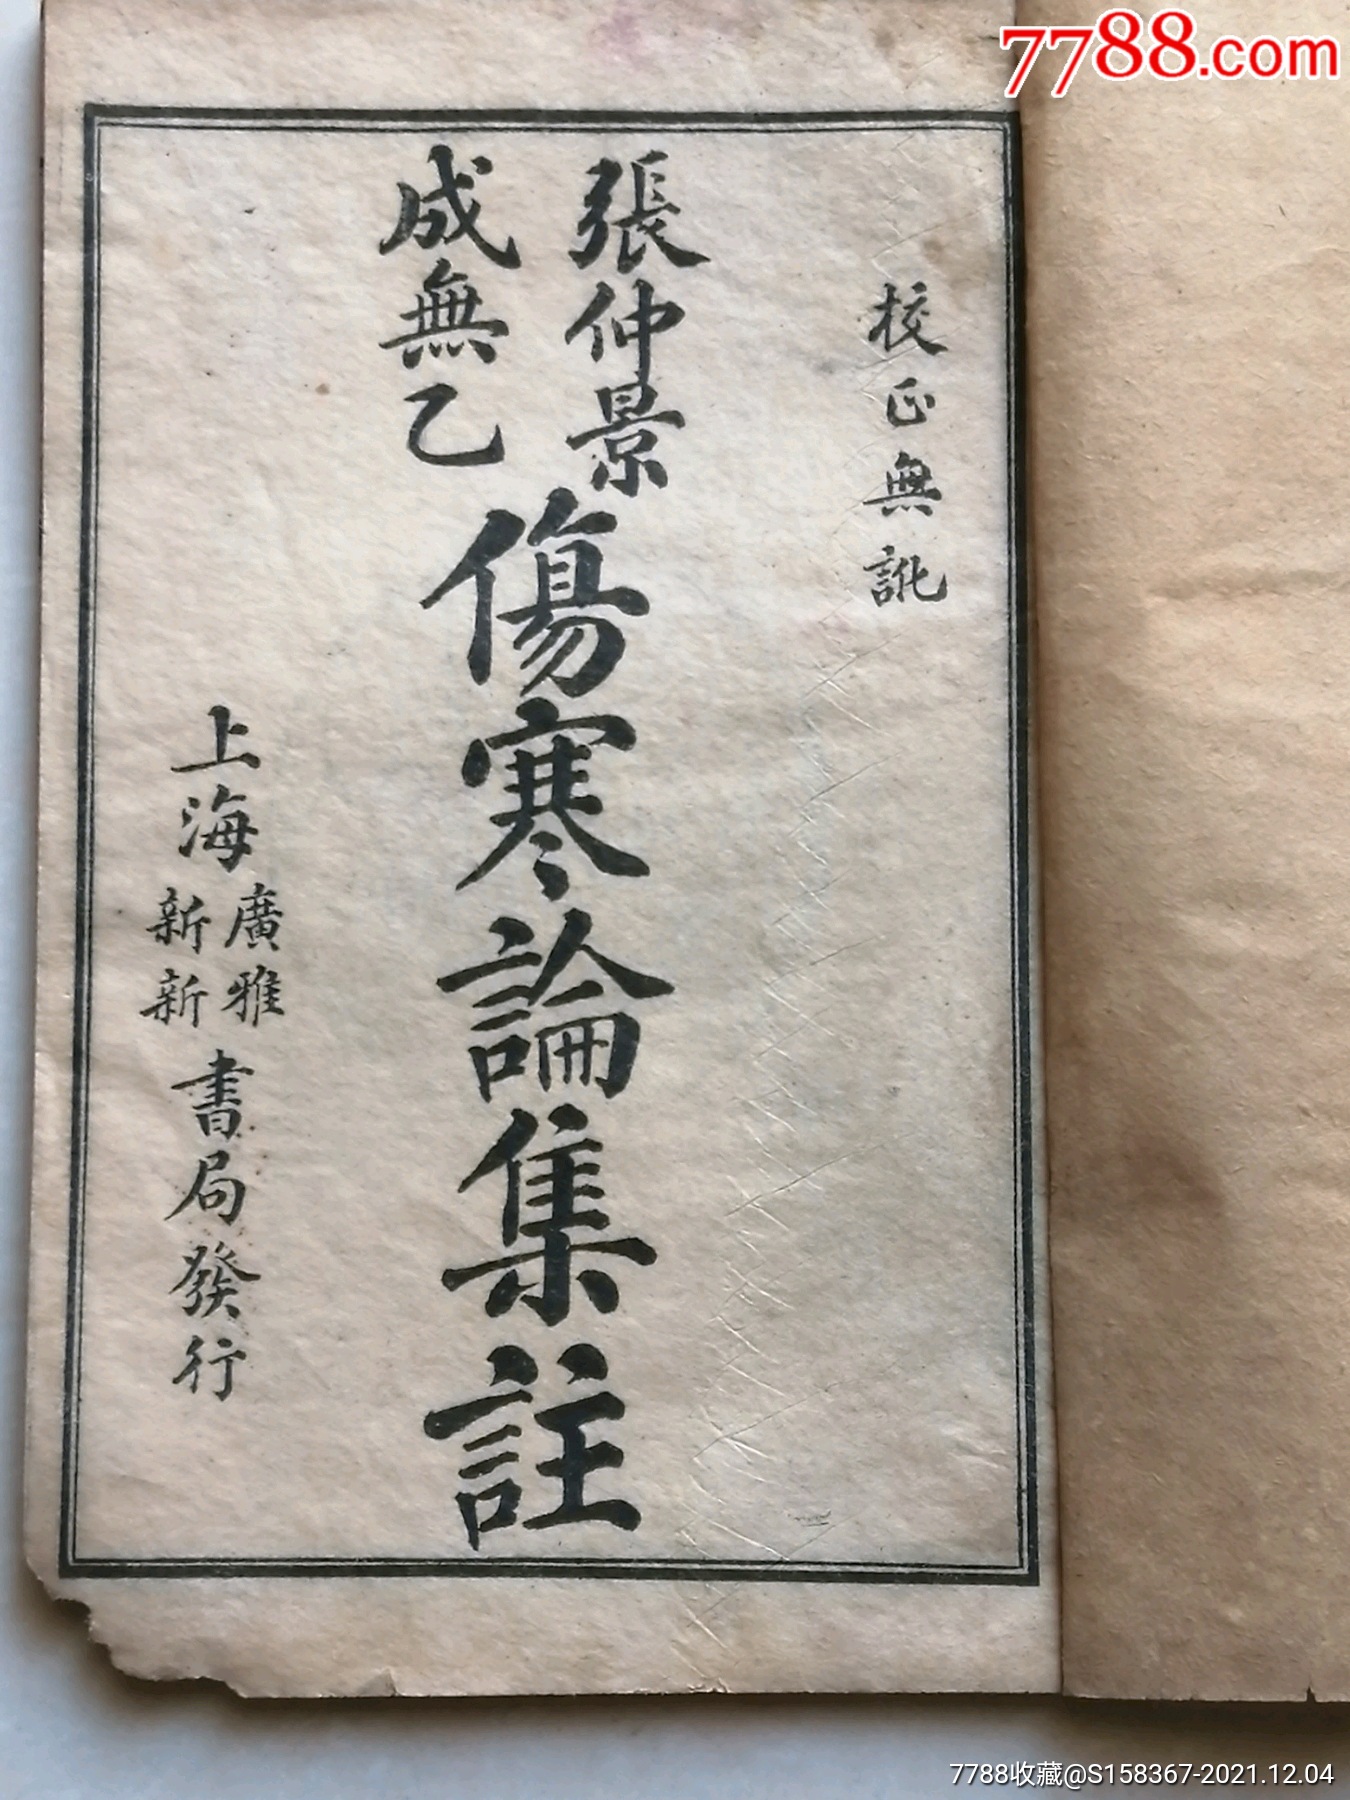 7788.com
校正無訛
張仲景
成無乙
傷寒論集註
上海
廣雅
新新
書局發行
7788收藏@S158367-2021.12.04